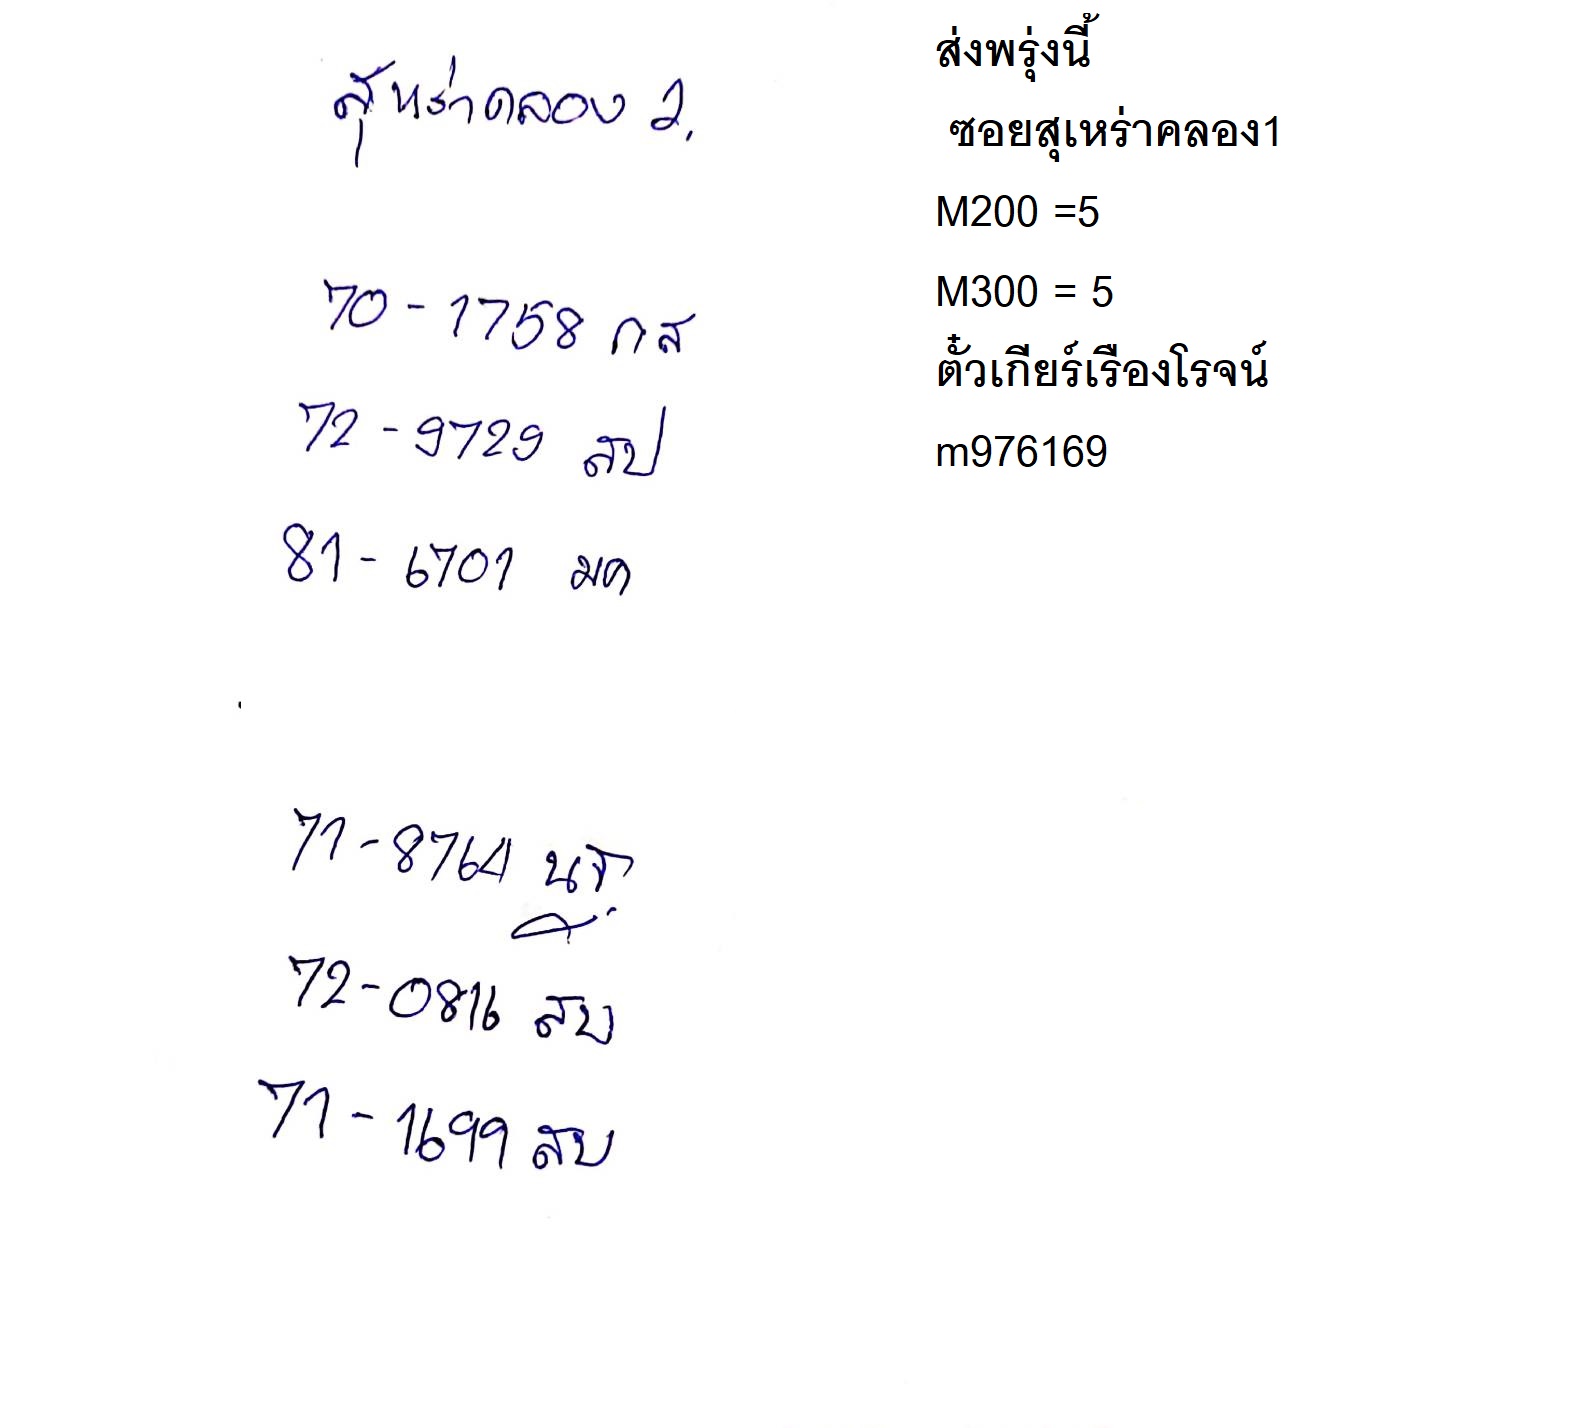 สุหร่าคลอง 2.
70 - 1758 กส
72 - 9729 สป
81 - 6701 มค
71 - 8764 นฐ
72 - 0816 สบ
71 - 1699 สบ
ส่งพรุ่งนี้
ซอยสุเหร่าคลอง1
M200 =5
M300 = 5
ตั๋วเกียร์เรืองโรจน์
m976169